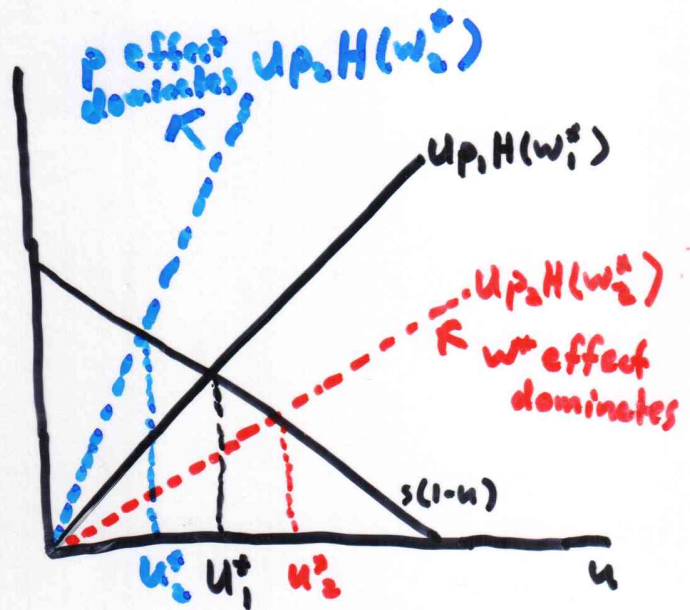 p effect
dominates
up₂H(w₂*)
up₁H(w₁*)
up₂H(w₂*)
w* effect
dominates
s(1-u)
u₂*
u₁*
u₂*
u